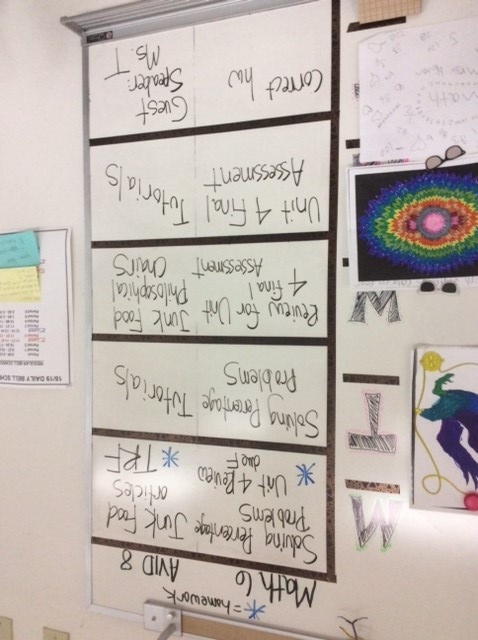 * = homework
Math 6
AVID 8
M
Solving Percentage
Problems
* Unit 4 Review
due F
Junk Food
articles
* TRF
T
Solving Percentage
Problems
Tutorials
W
Review for Unit
4 Final
Assessment
Junk Food
Philosophical
Chairs
Unit 4 Final
Assessment
Tutorials
Correct hw
Guest
Speaker:
Ms. T
18/19 DAILY BELL SCHE
math